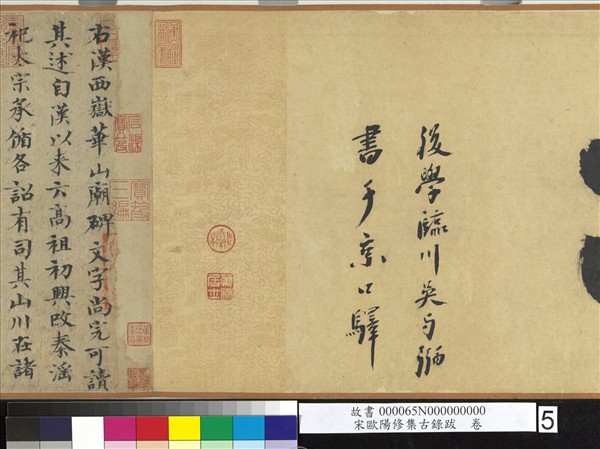 後學臨川吳与弼
書于京口驛
右漢西嶽華山廟碑文字尚完可讀
其述自漢以来云高祖初興改秦淫
祀太宗承循各詔有司其山川在諸
故書 000065N000000000
宋歐陽修集古錄跋 卷
5